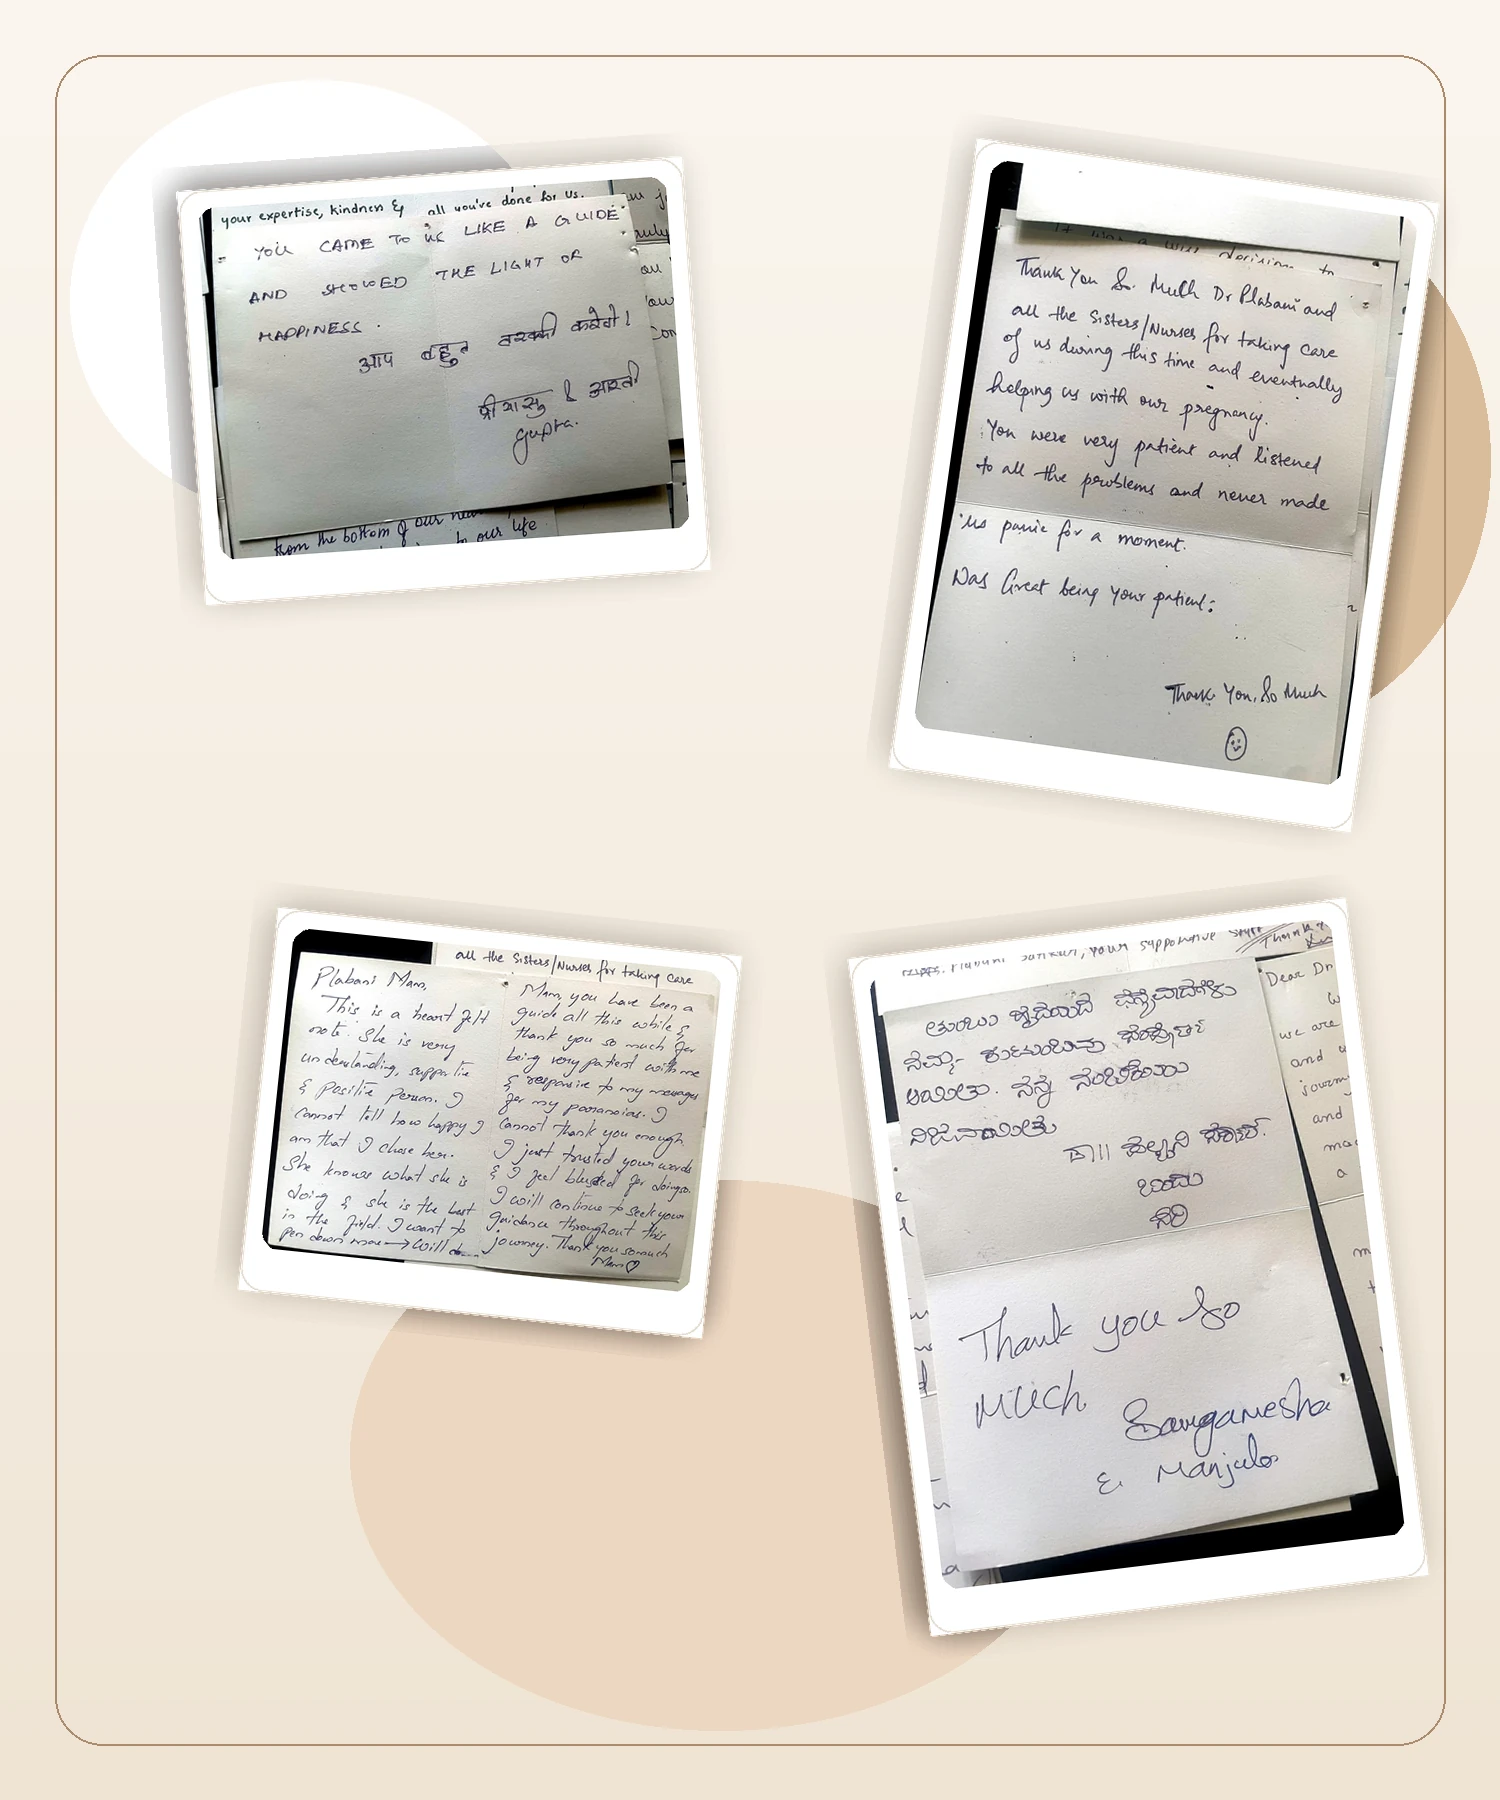 your expertise, kindness & all you've done for us.
YOU CAME TO US LIKE A GUIDE
AND SHOWED THE LIGHT OF
HAPPINESS.
आप बहुत तरक्की करेगी।
& आरती
Gupta.
from the bottom of our
to our life
It was a wise decision to
Thank You So Much Dr Plabani and
all the Sisters/Nurses for taking care
of us during this time and eventually
helping us with our pregnancy.
You were very patient and listened
to all the problems and never made
us panic for a moment.
Was Great being Your patient:
Thank You, So Much
all the Sisters/Nurses for taking care
Plabani Mam,
This is a heart felt
note. She is very
understanding, supportive
& positive person. I
cannot tell how happy I
am that I chose her.
She knows what she is
doing & she is the best
in the field. I want to
pen down more → Will do
Mam, you have been a
guide all this while &
thank you so much for
being very patient with me
& responsive to my messages
for my paranoias. I
cannot thank you enough
I just trusted your words
& I feel blessed for doing so.
I will continue to seek your
guidance throughout this
journey. Thank you so much
Mam ♡
your supportive staff
Thank
Dear Dr
we are
and
and
a
ತುಂಬು ಹೃದಯದ ಧನ್ಯವಾದಗಳು
ನಿಮ್ಮ ಕುಟುಂಬವು ಸಂಪೂರ್ಣ
ಆಯಿತು. ನನ್ನ ನಂಬಿಕೆಯು
ನಿಜವಾಯಿತು
ಡಾ||
Thank you So
Much
Sangamesha
& Manjula